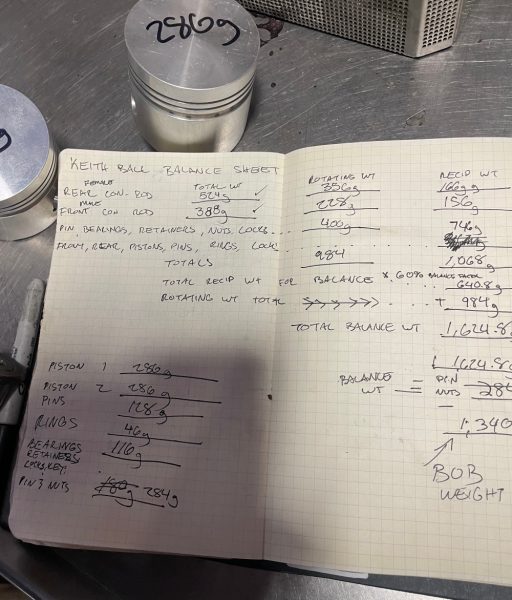 286g
KEITH BALL BALANCE SHEET
FEMALE
TOTAL WT
ROTATING WT
RECIP WT
REAR CON-ROD 524g ✓ 356g 166g
MALE
FRONT CON ROD 388g ✓ 228g 156
PIN, BEARINGS, RETAINERS, NUTS, LOCKS... 400g
FRONT, REAR, PISTONS, PINS, RINGS, LOCK 746g
TOTALS 984 1,068
TOTAL RECIP WT FOR BALANCE × 60% BALANCE FACTOR 640.8g
ROTATING WT TOTAL >>>>>> + 984g
TOTAL BALANCE WT 1,624.8g
1624.8g
BALANCE WT = PIN NUTS 284
1,340
BOB WEIGHT
PISTON 1 286g
PISTON 2 286g
PINS 128g
RINGS 46g
BEARINGS 116g
RETAINERS
LOCKS, KEY.
PIN & NUTS 284g